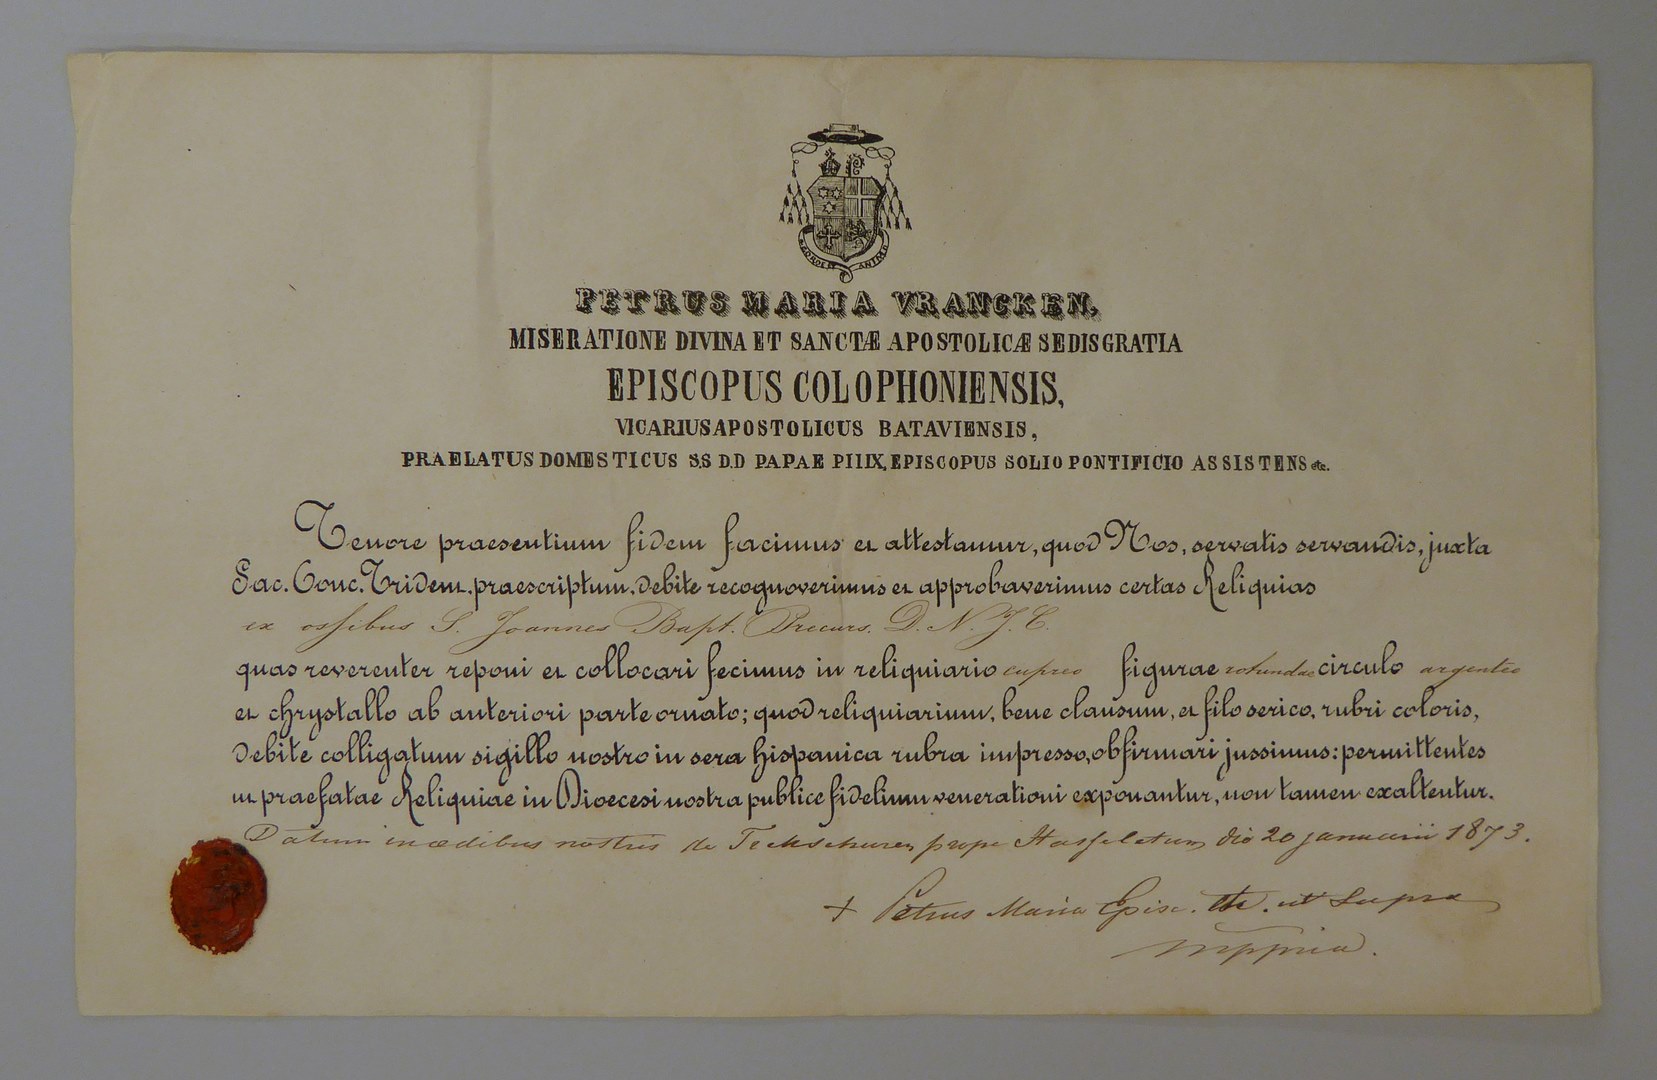 CONCORDIT ANIMIS
PETRUS MARIA VRANCKEN,
MISERATIONE DIVINA ET SANCTÆ APOSTOLICÆ SEDIS GRATIA
EPISCOPUS COLOPHONIENSIS,
VICARIUS APOSTOLICUS BATAVIENSIS,
PRAELATUS DOMESTICUS S.S D.D PAPAE PII IX, EPISCOPUS SOLIO PONTIFICIO ASSISTENS etc.
Tenore praesentium fidem facimus et attestamur, quod Nos, servatis servandis, juxta
Sac. Conc. Trident. praescriptum, debite recognoverimus et approbaverimus certas Reliquias
ex ossibus S. Joannes Bapt. Precurs. D. N. J. C.
quas reverenter reponi et collocari fecimus in reliquiario cupreo figurae rotundae circulo argenteo
et chrystallo ab anteriori parte ornato; quod reliquiarium, bene clausum, et filo serico, rubri coloris,
debite colligatum sigillo nostro in sera hispanica rubra impresso, obfirmari jussimus: permittentes
ut praefatae Reliquiae in Dioecesi nostra publice fidelium venerationi exponantur, non tamen exaltentur.
Datum in ædibus nostris de prope Hasseletum die 20 januarii 1873.
+ Petrus Maria Episc. etc. ut supra
mppria.